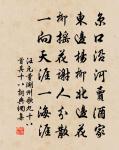 京口沿河賣酒家
東邊楊柳北邊花
柳搖花謝人分散
一向天涯一海涯
汪元量湖州歌九十八
首其十八詞典網集